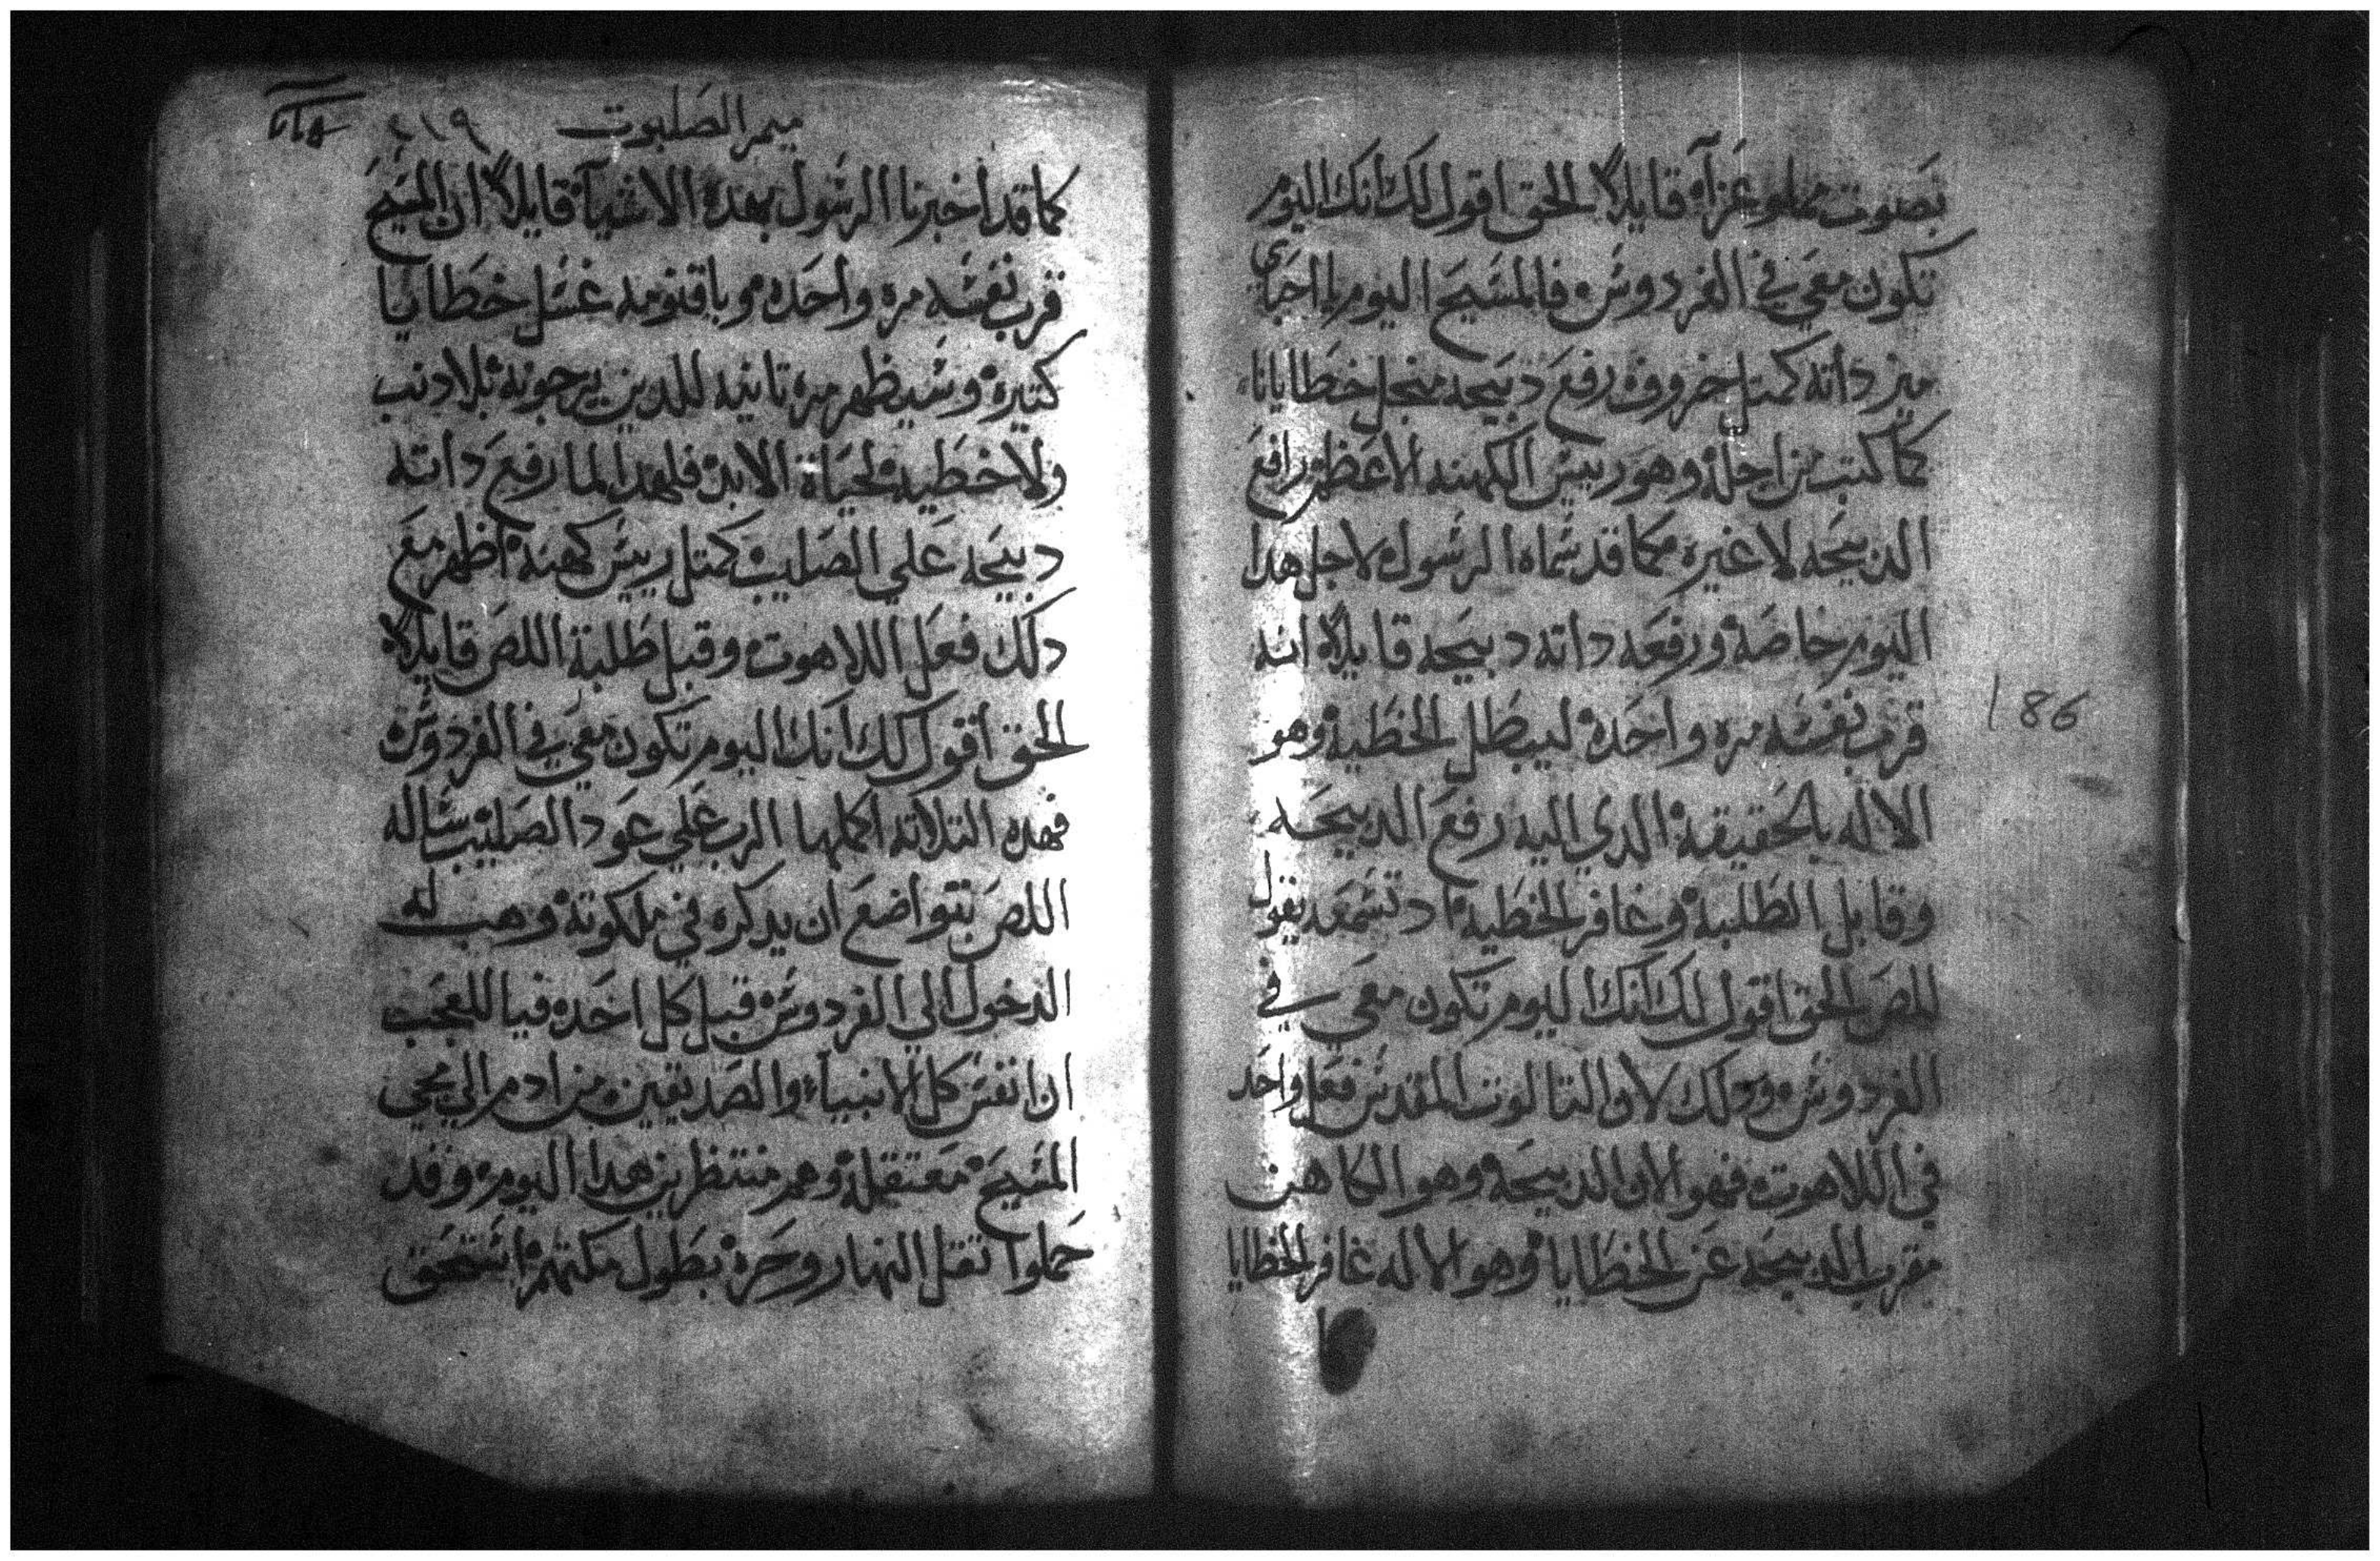 بصوت مملو عزآء قايلاً الحق اقول لك انك اليوم
تكون معي في الفردوس فالمسيح اليوم لما احباى
ميز داته كمتل خروف رفع دبيحه منجل خطايانا
كما كتب من اجله وهو رييس الكهنه الاعظم رافع
الدبيحه لا غيره كما قد سماه الرسول لاجل هدا
اليوم خاصه ورفعه داته دبيحه قايلاً انه
قرب نفسه مره واحده ليبطل الخطيه وهو
الاله بالحقيقه الدي اليه رفع الدبيحه
وقابل الطلبه وغافر الخطيه اد تسمعه يقول
للص الحق اقول لك انك اليوم تكون معي في
الفردوس ودلك لان التالوت المقدس فعل واحد
في اللاهوت فهو الان الدبيحه وهو الكاهن
مقرب الدبيحه عن الخطايا وهو الاله غافر الخطايا
186
ميمر الصلبوت ٢١٩
كما قد اخبرنا الرسول بهده الاشيآء قايلاً ان المسيح
قرب نفسه مره واحده وباقنومه غسل خطايا
كتيره وسيظهر مره تانيه للدين يرجونه بلا دنب
ولا خطيه لحياة الابد فلهدا لما رفع داته
دبيحه علي الصليب كمتل رييس كهنه اظهر مع
دلك فعل اللاهوت وقبل طلبة اللص قايلاً
الحق اقول لك انك اليوم تكون معي في الفردوس
فهده التلاته اكملها الرب علي عود الصليب ساله
اللص بتواضع ان يدكره في ملكوته وهب له
الدخول الي الفردوس قبل كل احد فيا للعجب
ان انفس كل الانبياء والصديقين من ادم الي مجي
المسيح معتقله وهم منتظرين هدا اليوم وقد
حملوا تقل النهار وحره بطول مكتهم استحق